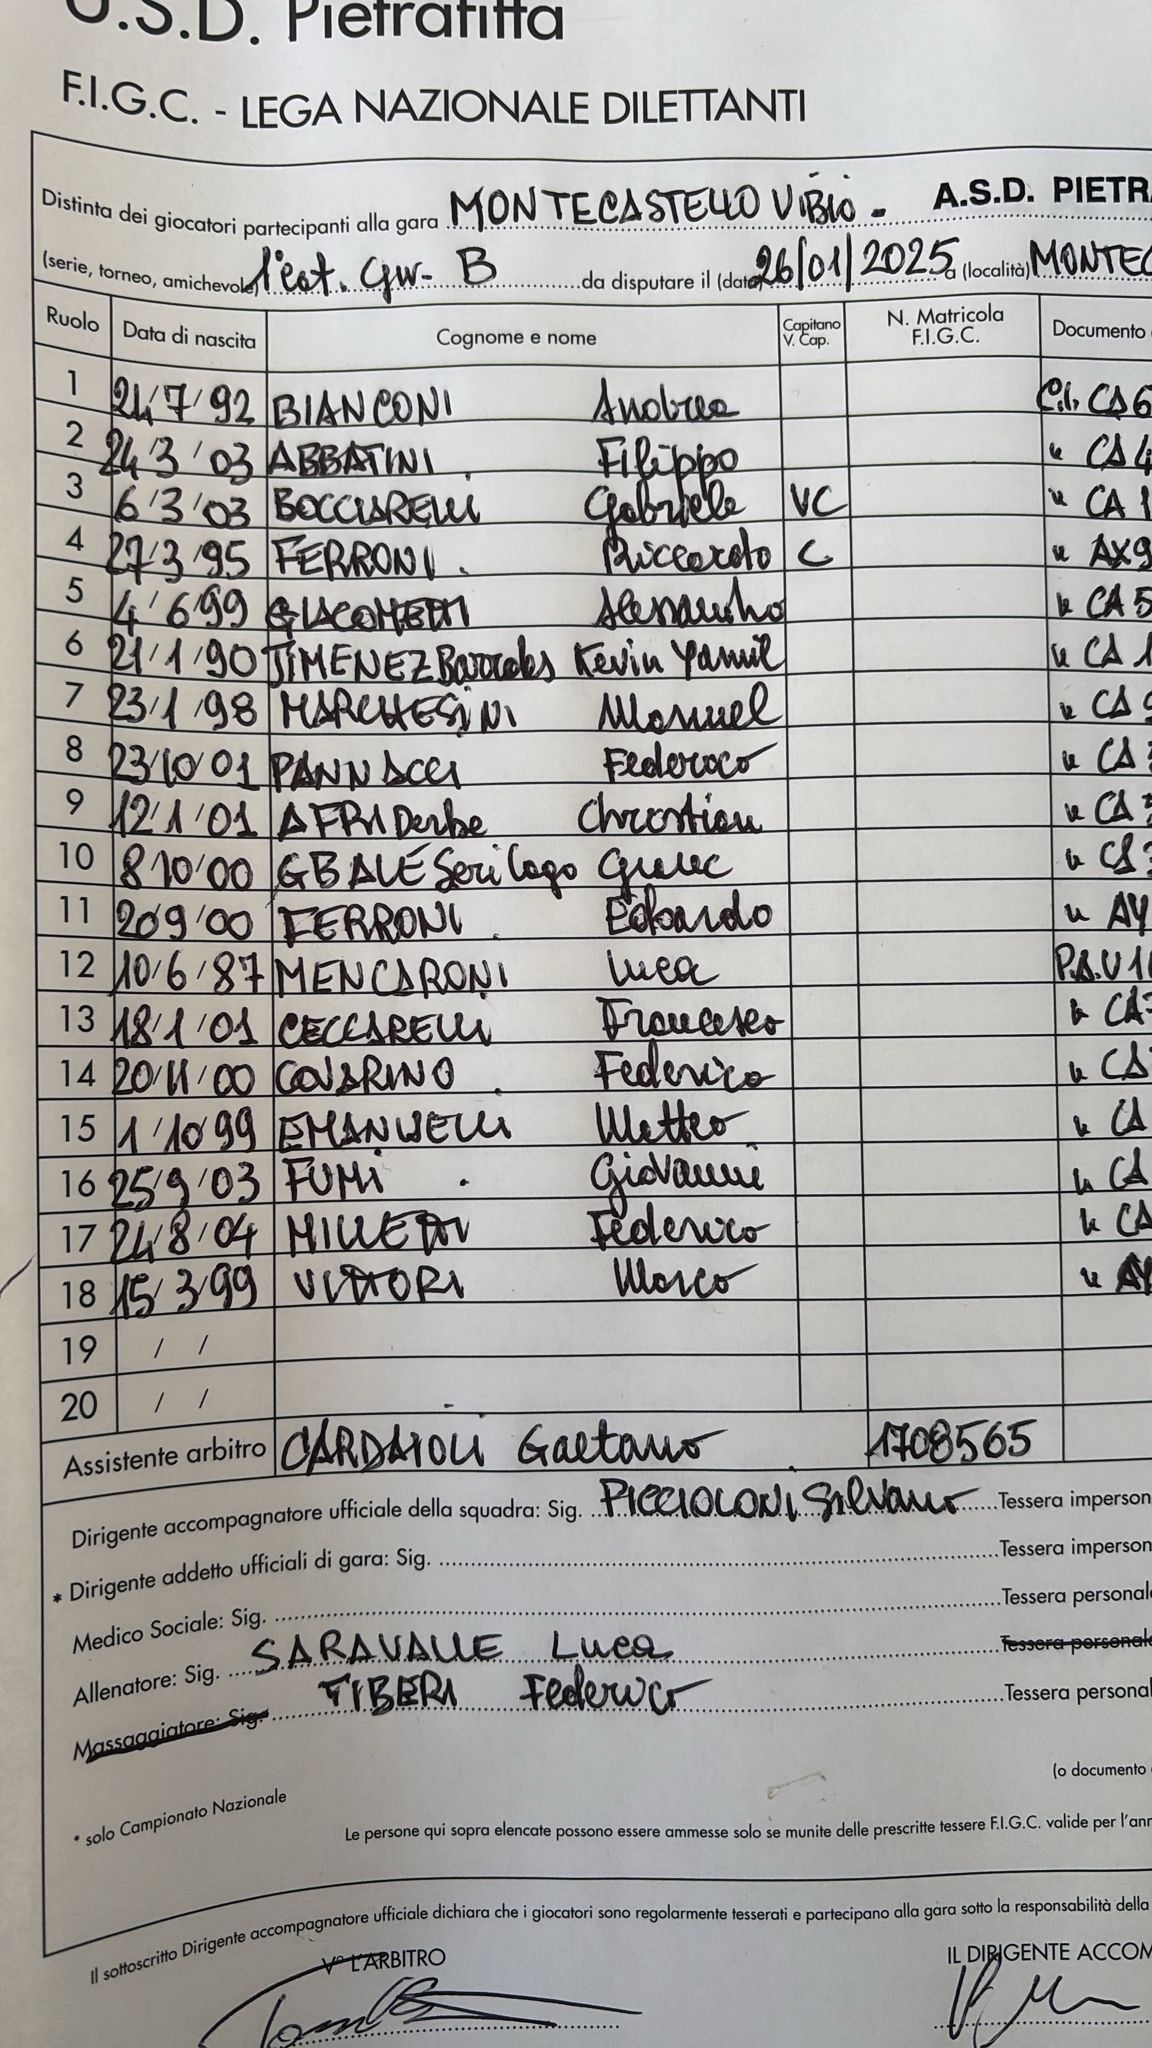 U.S.D. Pietrafitta
F.I.G.C. - LEGA NAZIONALE DILETTANTI
Distinta dei giocatori partecipanti alla gara MONTECASTELLO VIBIO - A.S.D. PIETR
(serie, torneo, amichevole) B da disputare il (data) 26/01/2025 a (località) MONTEC
Ruolo Data di nascita Cognome e nome Capitano V. Cap. N. Matricola F.I.G.C. Documento
1 24/7/92 BIANCONI Andrea C.I. CA6
2 24/3/03 ABBATINI Filippo " CA4
3 6/3/03 BOCCIARELLI Gabriele VC " CA1
4 27/3/95 FERRONI Riccardo C " AX9
5 4/6/99 GIACOMETTI Alessandro " CA5
6 21/1/90 JIMENEZ Barrales Kevin Yamil " CA1
7 23/1/98 MARCHESINI Manuel " CA9
8 23/10/01 PANNACCI Federico " CA3
9 12/1/01 AFRI Derbe Christian " CA3
10 8/10/00 GBALE Seri Lago " CA3
11 20/9/00 FERRONI Edoardo " AY
12 10/6/87 MENCARONI Luca P.A. U11
13 18/1/01 CECCARELLI Francesco " CA7
14 20/11/00 Federico " CA
15 1/10/99 EMANUELLI Matteo " CA
16 25/9/03 FUMI Giovanni " CA
17 24/8/04 MILLETTI Federico " CA
18 15/3/99 VITTORI Marco " AY
19 / /
20 / /
Assistente arbitro CARDAIOLI Gaetano 1708565
Dirigente accompagnatore ufficiale della squadra: Sig. PICCIOLONI Silvano Tessera imperson
* Dirigente addetto ufficiali di gara: Sig. Tessera imperson
Medico Sociale: Sig. Tessera personal
Allenatore: Sig. SARAVALLE Luca Tessera personale
Massaggiatore: Sig. TIBERI Federico Tessera personal
(o documento
* solo Campionato Nazionale
Le persone qui sopra elencate possono essere ammesse solo se munite delle prescritte tessere F.I.G.C. valide per l'ann
Il sottoscritto Dirigente accompagnatore ufficiale dichiara che i giocatori sono regolarmente tesserati e partecipano alla gara sotto la responsabilità della
V° L'ARBITRO IL DIRIGENTE ACCOM